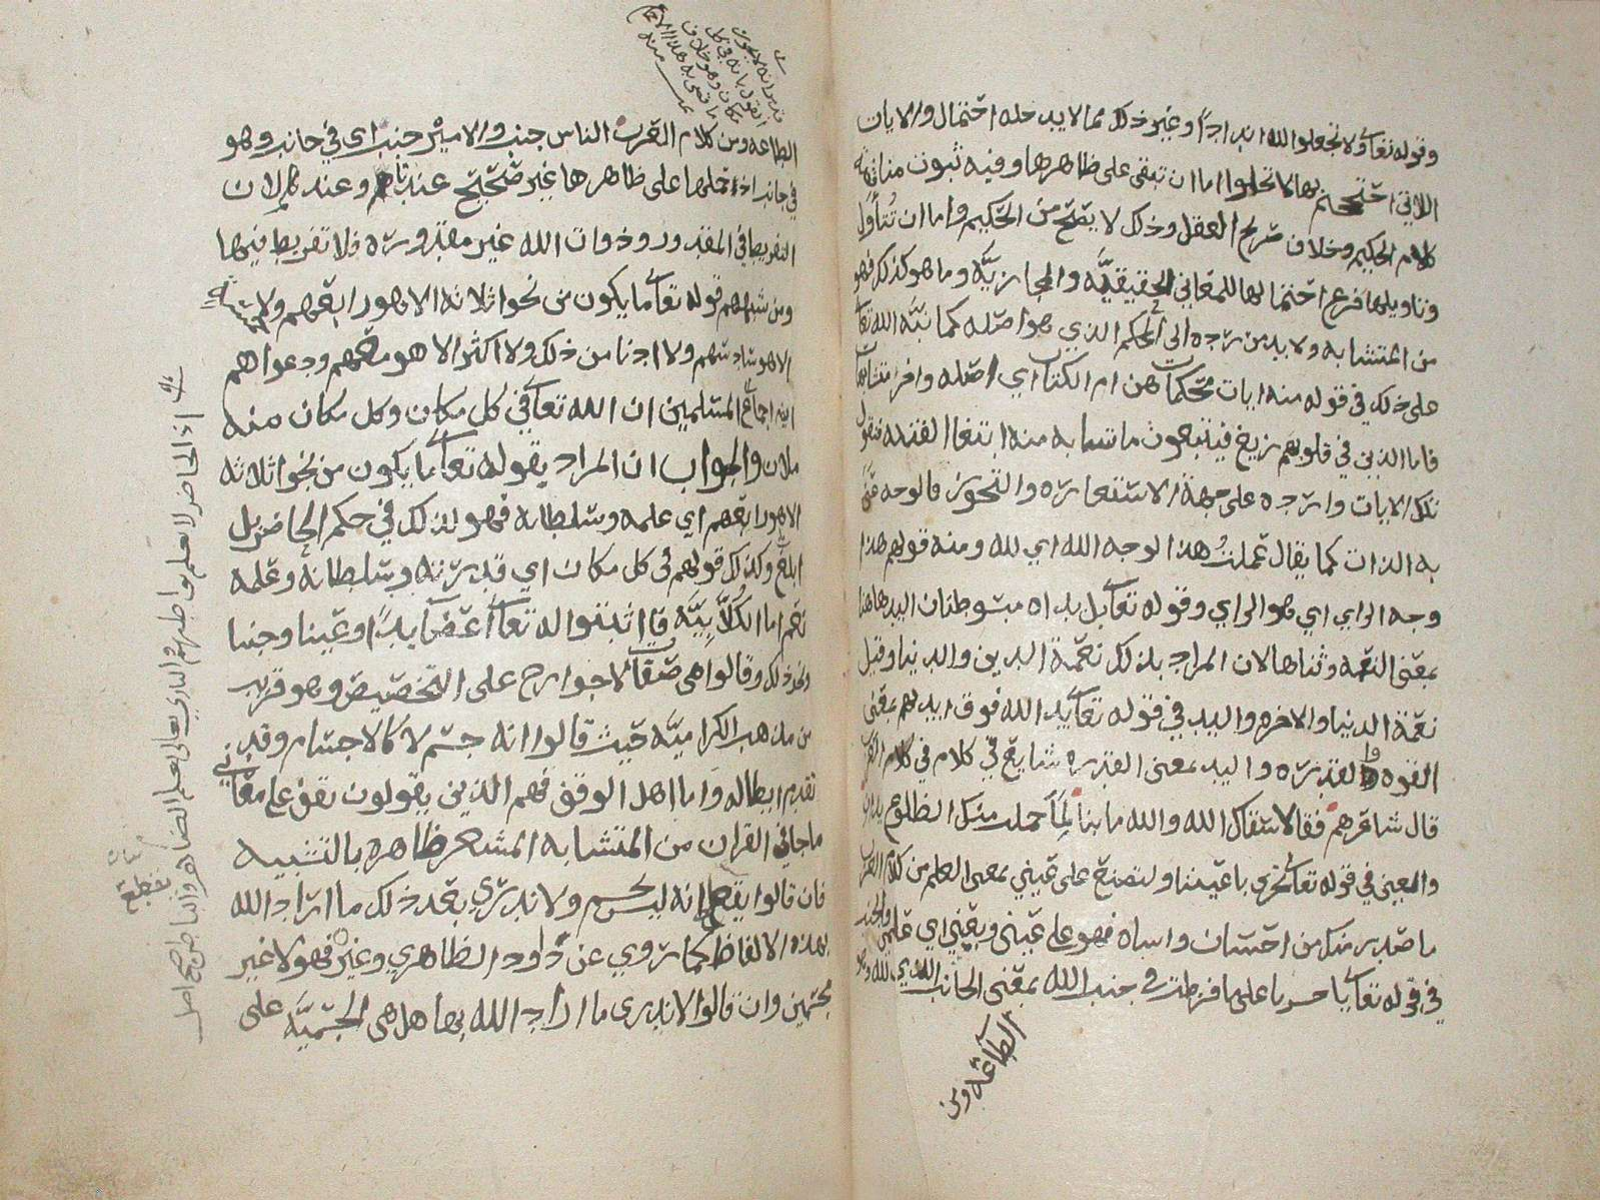 وقوله تعالى ولا تجعلوا الله اندادا وغير ذلك مما لا يدخله احتمال والايات
اللاتي احتججتم بها لا تخلوا اما ان تبقى على ظاهرها وفيه ثبوت مناقضة
كلام الحكيم وخلاف صريح العقل وذلك لا يصح من الحكيم واما ان تتأول
وتاويلها فرع احتمالها للمعاني الحقيقيَّه والمجازيَّه وما هو كذلك فهو
من المتشابه ولا بد من رده الى المحكم الذي هو اصله كما نبَّه الله تعالى
على ذلك في قوله منه ايات محكمات هن ام الكتاب اي اصله واخر متشابهات
فاما الذين في قلوبهم زيغ فيتبعون ما تشابه منه ابتغا الفتنه فنقول
تلك الايات وارده على جهة الاستعاره والتجوز فالوجه
به الذات كما يقال عملت هذا لوجه الله اي لله ومنه قولهم هذا
وجه الراي اي هو الراي وقوله تعالى بل يداه مبسوطتان اليد هاهنا
بمعنى النعمه وثناها لان المراد بذلك نعمة الدين والدنيا وقيل
نعمة الدنيا والاخره واليد في قوله تعالى يد الله فوق ايديهم بمعنى
القوه والقدره واليد بمعنى القدره شايع في كلام في كلام العرب
قال شاعرهم فقالا شفاك الله والله ما بنا لِمَا حملت منك الضلوع يدان
والمعنى في قوله تعالى تجري باعيننا ولتصنع على عيني بمعنى العلم من كلام العرب
ما صدر منك من احسان واساه فهو على عيني وبعيني اي علمي والجنب
في قوله تعالى يا حسرتا على ما فرطت في جنب الله بمعنى الجانب الذي لله وهو
الطاعه ومن
الطاعه ومن كلام العرب الناس جنب والامير جنب اي في جانب وهو
في جانب اذ حملها على ظاهرها غير صحيح عندنا وعندكم لان
التفريط في المقدور وذوات الله غير مقدوره فلا تفريط فيها
ومن شبههم قوله تعالى ما يكون من نجوا ثلاثه الا هو رابعهم ولا خمسه
الا هو سادسهم ولا ادنا من ذلك ولا اكثر الا هو معهم ودعواهم
انه اجماع المسلمين ان الله تعالى في كل مكان وكل مكان منه
ملان والجواب ان المراد بقوله تعالى ما يكون من نجوا ثلاثه
الا هو رابعهم اي علمه وسلطانه فهو لذلك في حكم الحاضر بل
ابلغ وكذلك قولهم في كل مكان اي قدرته وسلطانه وعلمه
نعم اما الكُلَّابيَّه فاثبتوا له تعالى اعضا يدا وعينا وجنبا
وغير ذلك وقالوا هي صفات لا جوارح على التخصيص وهو قريب
من مذهب الكراميَّه حيث قالوا انه جسم لا كالاجسام وقد
تقدم ابطاله واما اهل الوقف فهم الذين يقولون نقف على معاني
ما جا في القران من المتشابه المشعر ظاهره بالتشبيه
فان قالوا نقطع انه ليس بجسم ولا ندري بعد ذلك ما اراد الله
بهذه الالفاظ كما روي عن داود الظاهري وغيره فهولا غير
مجسمين وان قالوا لا ندري ما اراد الله بها هل هي الجسميَّه على
اذ الحاضر لا يعلم بواطنهم والباري تعالى يعلم الظاهر والباطن صح اصل
نقطع